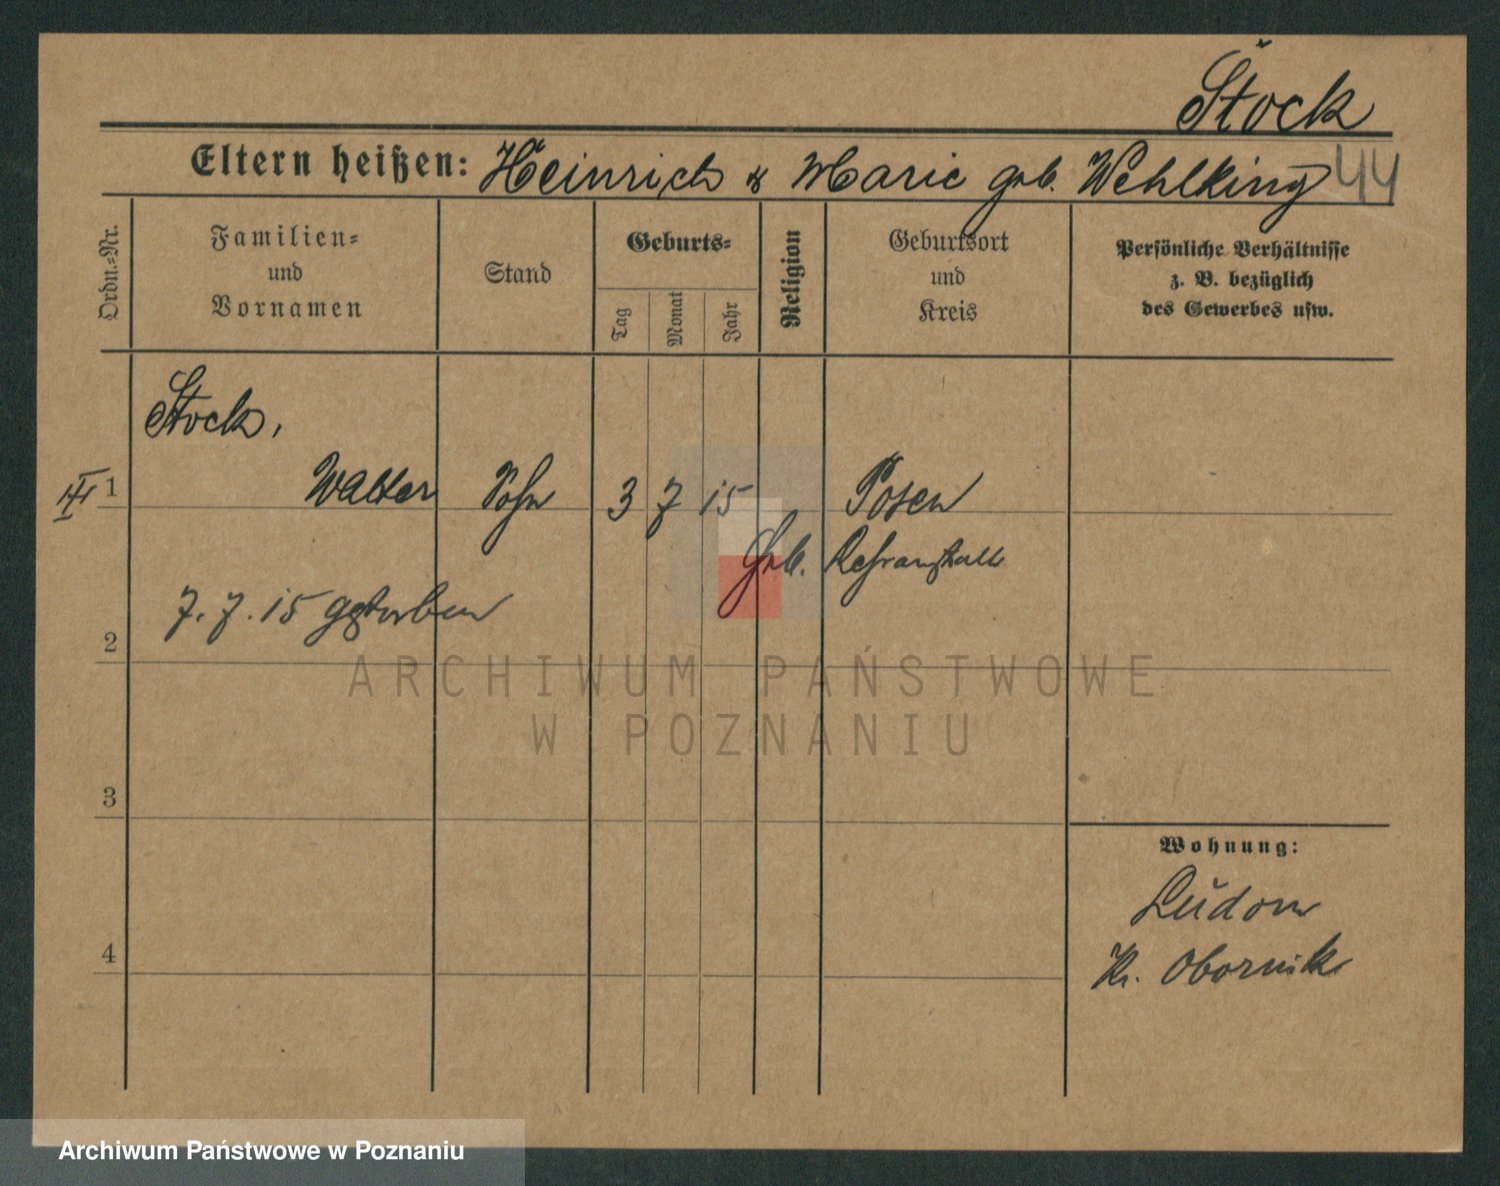 Stock
Eltern heißen: Heinrich & Marie geb. Wehlking
44
Ordn.=Nr.
Familien=
und
Vornamen
Stand
Geburts=
Tag
Monat
Jahr
Religion
Geburtsort
und
Kreis
Persönliche Verhältnisse
z. B. bezüglich
des Gewerbes usw.
Stock,
1 Walter Sohn 3 7 15 Posen
Geb. Lehranstalt
7. 7. 15 gestorben
2
3
4
Wohnung:
Ludom
Kr. Obornik
ARCHIWUM PAŃSTWOWE
W POZNANIU
Archiwum Państwowe w Poznaniu